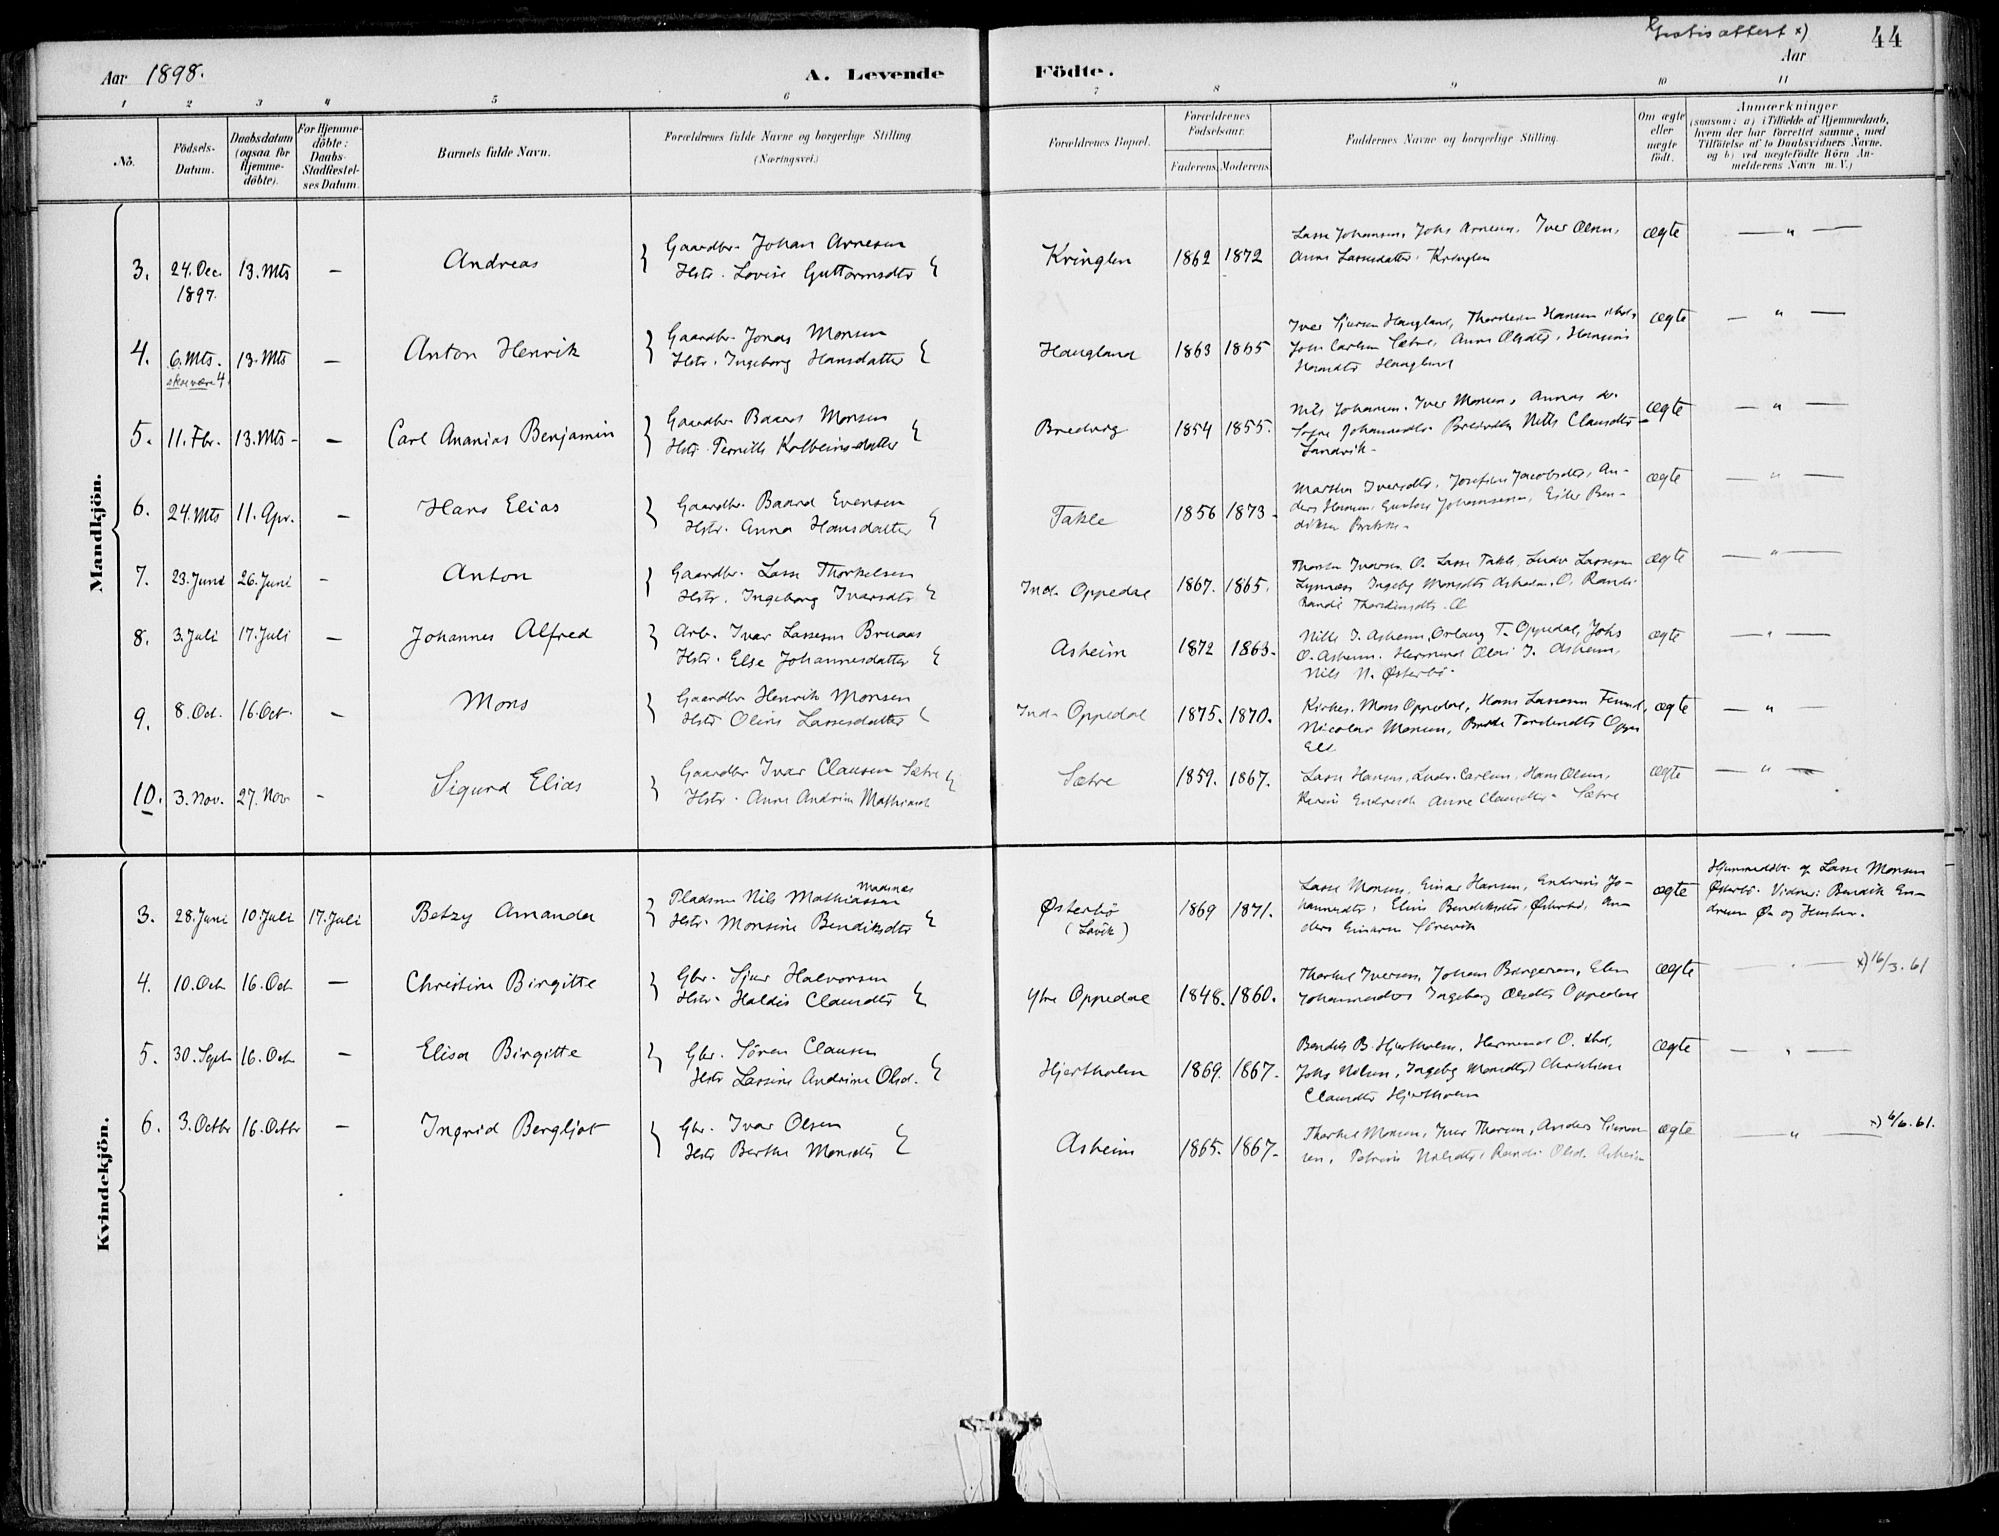 Gratisattest x)
44
Aar 1898.
A. Levende Födte.
Aar
1 2 3 4 5 6 7 8 9 10 11
No.
Födsels-Datum.
Daabsdatum (ogsaa for Hjemme-döbte).
For Hjemme-döbte: Daabs-Stadfæstel-ses Datum.
Barnets fulde Navn.
Forældrenes fulde Navne og borgerlige Stilling (Næringsvei.)
Forældrenes Bopæl.
Forældrenes Födselsaar.
Faderens. Moderens.
Faddernes Navne og borgerlige Stilling.
Om ægte eller uægte födt.
Anmærkninger (saasom: a) i Tilfælde af Hjemmedaab, hvem der har forrettet samme, med Tilföielse af to Daabsvidners Navne. og b) ved uægtefödte Börn An-melderens Navn m. V.)
Mandkjön.
3. 24. Dec. 1897. 13. Mts – Andreas
Gaardbr. Johan Arnesen
Hstr. Lovise Guttormsdtr
Kringlen 1862 1872
Lasse Johansen, Johs Arnesen, Iver Olsen,
Anne Lassesdatter Kringlen
ægte — " —
4. 6. Mts. skal være 4. 13. Mts – Anton Henrik
Gaardbr. Jonas Monsen
Hstr. Ingeborg Hansdatter
Haugland 1863 1865
Iver Sjursen Haugland, Thorstein Hansen
Johs Carlsen Sætre, Anne Olsdtr,
Haugland
ægte — " —
5. 11. Fbr. 13. Mts – Carl Ananias Benjamin
Gaardbr. Baard Monsen
Hstr. Pernille Kolbeinsdatter
Bredvig 1854 1855.
Nils Johansen. Iver Monsen, Annas
Johannesdtr. Nille Clausdtr
Sandvik
ægte — " —
6. 24. Mts 11. Apr. – Hans Elias
Gaardbr. Baard Evensen
Hstr. Anna Hansdatter
Takle 1856 1873
Martha Iversdtr, Josefine Jacobsdtr, An-
ders Hansen, Gustav Johannesen, Ben-
diksen
ægte — " —
7. 23. Juni 26. Juni – Anton
Gaardbr. Lasse Thorkelsen
Hstr. Ingeborg Ivarsdtr
Ind. Oppedal 1867. 1865.
Thorsten Iversen O. Lasse Takle, Ludv Lassesen
Ingeb Monsdtr O.
Thordinsdtr. O
ægte — " —
8. 3. Juli 17. Juli – Johannes Alfred
Arb. Ivar Lassesen Bruaas
Hstr. Else Johannesdatter
Asheim 1872 1863.
Nills J. Asheim, T. Oppedal, Johs
O. Asheim. Hermund J. Asheim,
Nils N. Østerbø.
ægte — " —
9. 8. Oct. 16. Oct. – Mons
Gaardbr Henrik Monsen
Hstr Oline Lassesdatter
Ind. Oppedal 1875. 1870.
Kirkes. Mons Oppedal, Hans Lassesen
Nicolai Monsen,
ægte — " —
10. 3. Nov. 27. Nov – Sigurd Elias
Gaardbr Ivar Clausen Sætre
Hstr. Anne Andrine Mathiasd
Sætre 1859. 1867.
Lasse Hansen, Ludv. Carlsen, Hans Olsen,
Anne Clausdtr Sætre
ægte — " —
Kvindekjön.
3. 28. Juni 10 Juli 17. Juli Betzy Amanda
Pladsm Nils Mathiassen Madsnæs
Hstr. Monsine Bendiksdtr
Østerbø (Lavik) 1869 1871.
Lasse Monsen, Einar Hansen, Jo-
hannesdtr, Eline Bendiksdtr Østerbø, An-
ders Einarsen Sörevik
ægte
Hjemmedöbt af Lasse Monsen
Østerbø. Vidner: Bendik En-
dresen Øs og Hustru.
4. 10. Oct 16. Oct – Christine Birgitte
Gbr. Sjur Halvorsen
Hstr. Haldis Clausdtr
Ytre Oppedal 1848. 1860.
Thorkel Iversen, Johan Børgesen, Elen
Johannesdtr Ingeborg Olsdtr Oppedal
ægte — " — x) 16/3. 61
5. 30. Sept. 16. Oct – Elisa Birgitte
Gbr. Sören Clausen
Hstr Lassine Andrine Olsd.
Hjertholm 1869. 1867.
Bendik B. Hjertholm, Hermund O.
Johs Nilsen, Ingeb Monsdtr Christine
Clausdtr Hjertholm
ægte — " —
6. 3. Octbr 16. Octbr – Ingrid Bergljot
Gbr. Ivar Olsen
Hstr Berthe Monsdtr
Asheim 1865. 1867.
Thorkel Monsen, Iver Thoresen, Anders Simon-
sen, Petrine Nilsdtr, Randi Olsd. Asheim
ægte — " — x) 6/6. 61.